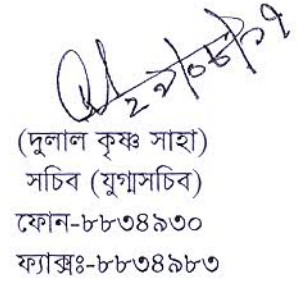 ২২/০৮/১৭
(দুলাল কৃষ্ণ সাহা)
সচিব (যুগ্মসচিব)
ফোন-৮৮৩৪৯৩০
ফ্যাক্সঃ-৮৮৩৪৯৮৩